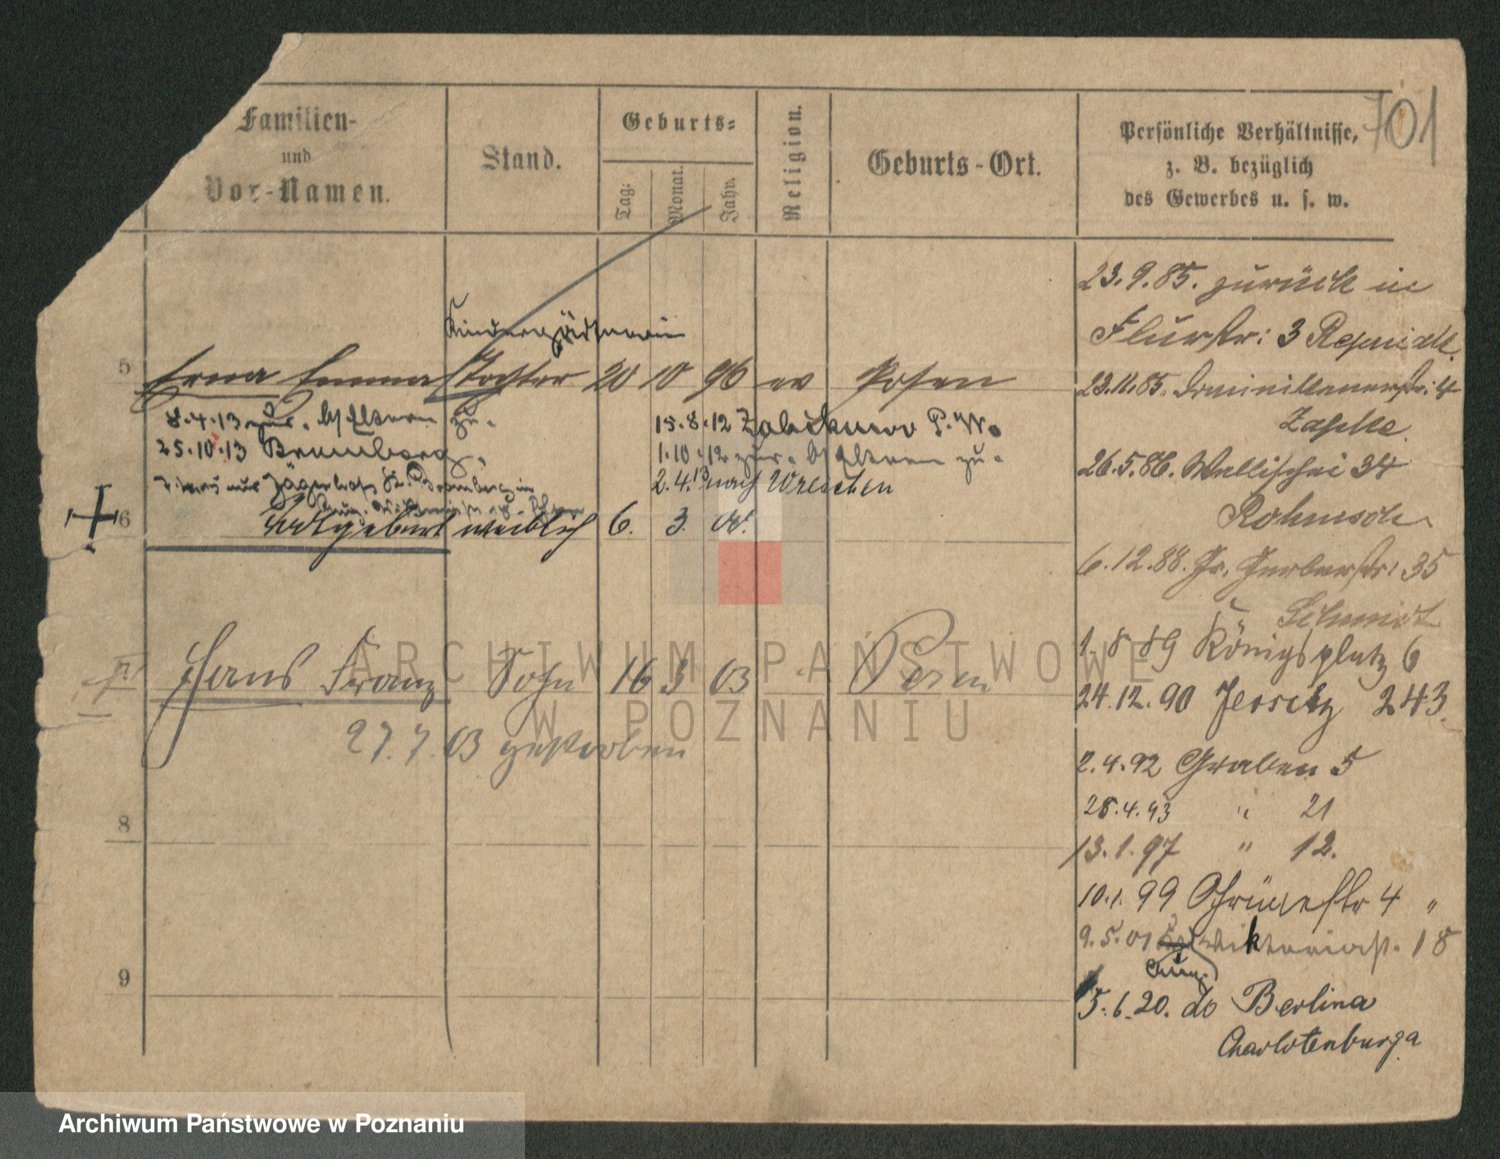 701
Familien-
und
Vor-Namen.
Stand.
Geburts-
Tag:
Monat.
Jahr.
Religion.
Geburts-Ort.
Persönliche Verhältnisse,
z. B. bezüglich
des Gewerbes u. s. w.
Kindergärtnerin
5 Erna Emma Tochter 20 10 96 ev Posen
8.4.13 zur. v/ Eltern zu.
25.10.13 Bromberg.
15.8.12 Zabikowo P. W.
1.10.12 zur. v/ Eltern zu.
2.4.13 nach Wreschen
6 Totgeburt weiblich 6. 3. 01.
7 Hans Franz Sohn 16 3 03 Posen
27.7.03 gestorben
8
9
23.9.85. zurück in
Flurstr: 3
23.11.85. Dominikanerstr: 4
26.5.86. Wallischei 34
6.12.88. Gr. Gerberstr: 35
Schmidt
1.8 89 Königsplatz 6
24.12.90 Jersitz 243.
2.4.92 Graben 5
28.4.93 " 21
13.1.97 " 12.
10.1.99 Schützenstr 4 "
9.5.01 Viktoriastr. 18
5.6.20. do Berlina
Charlotenburga
ARCHIWUM PAŃSTWOWE
W POZNANIU
Archiwum Państwowe w Poznaniu